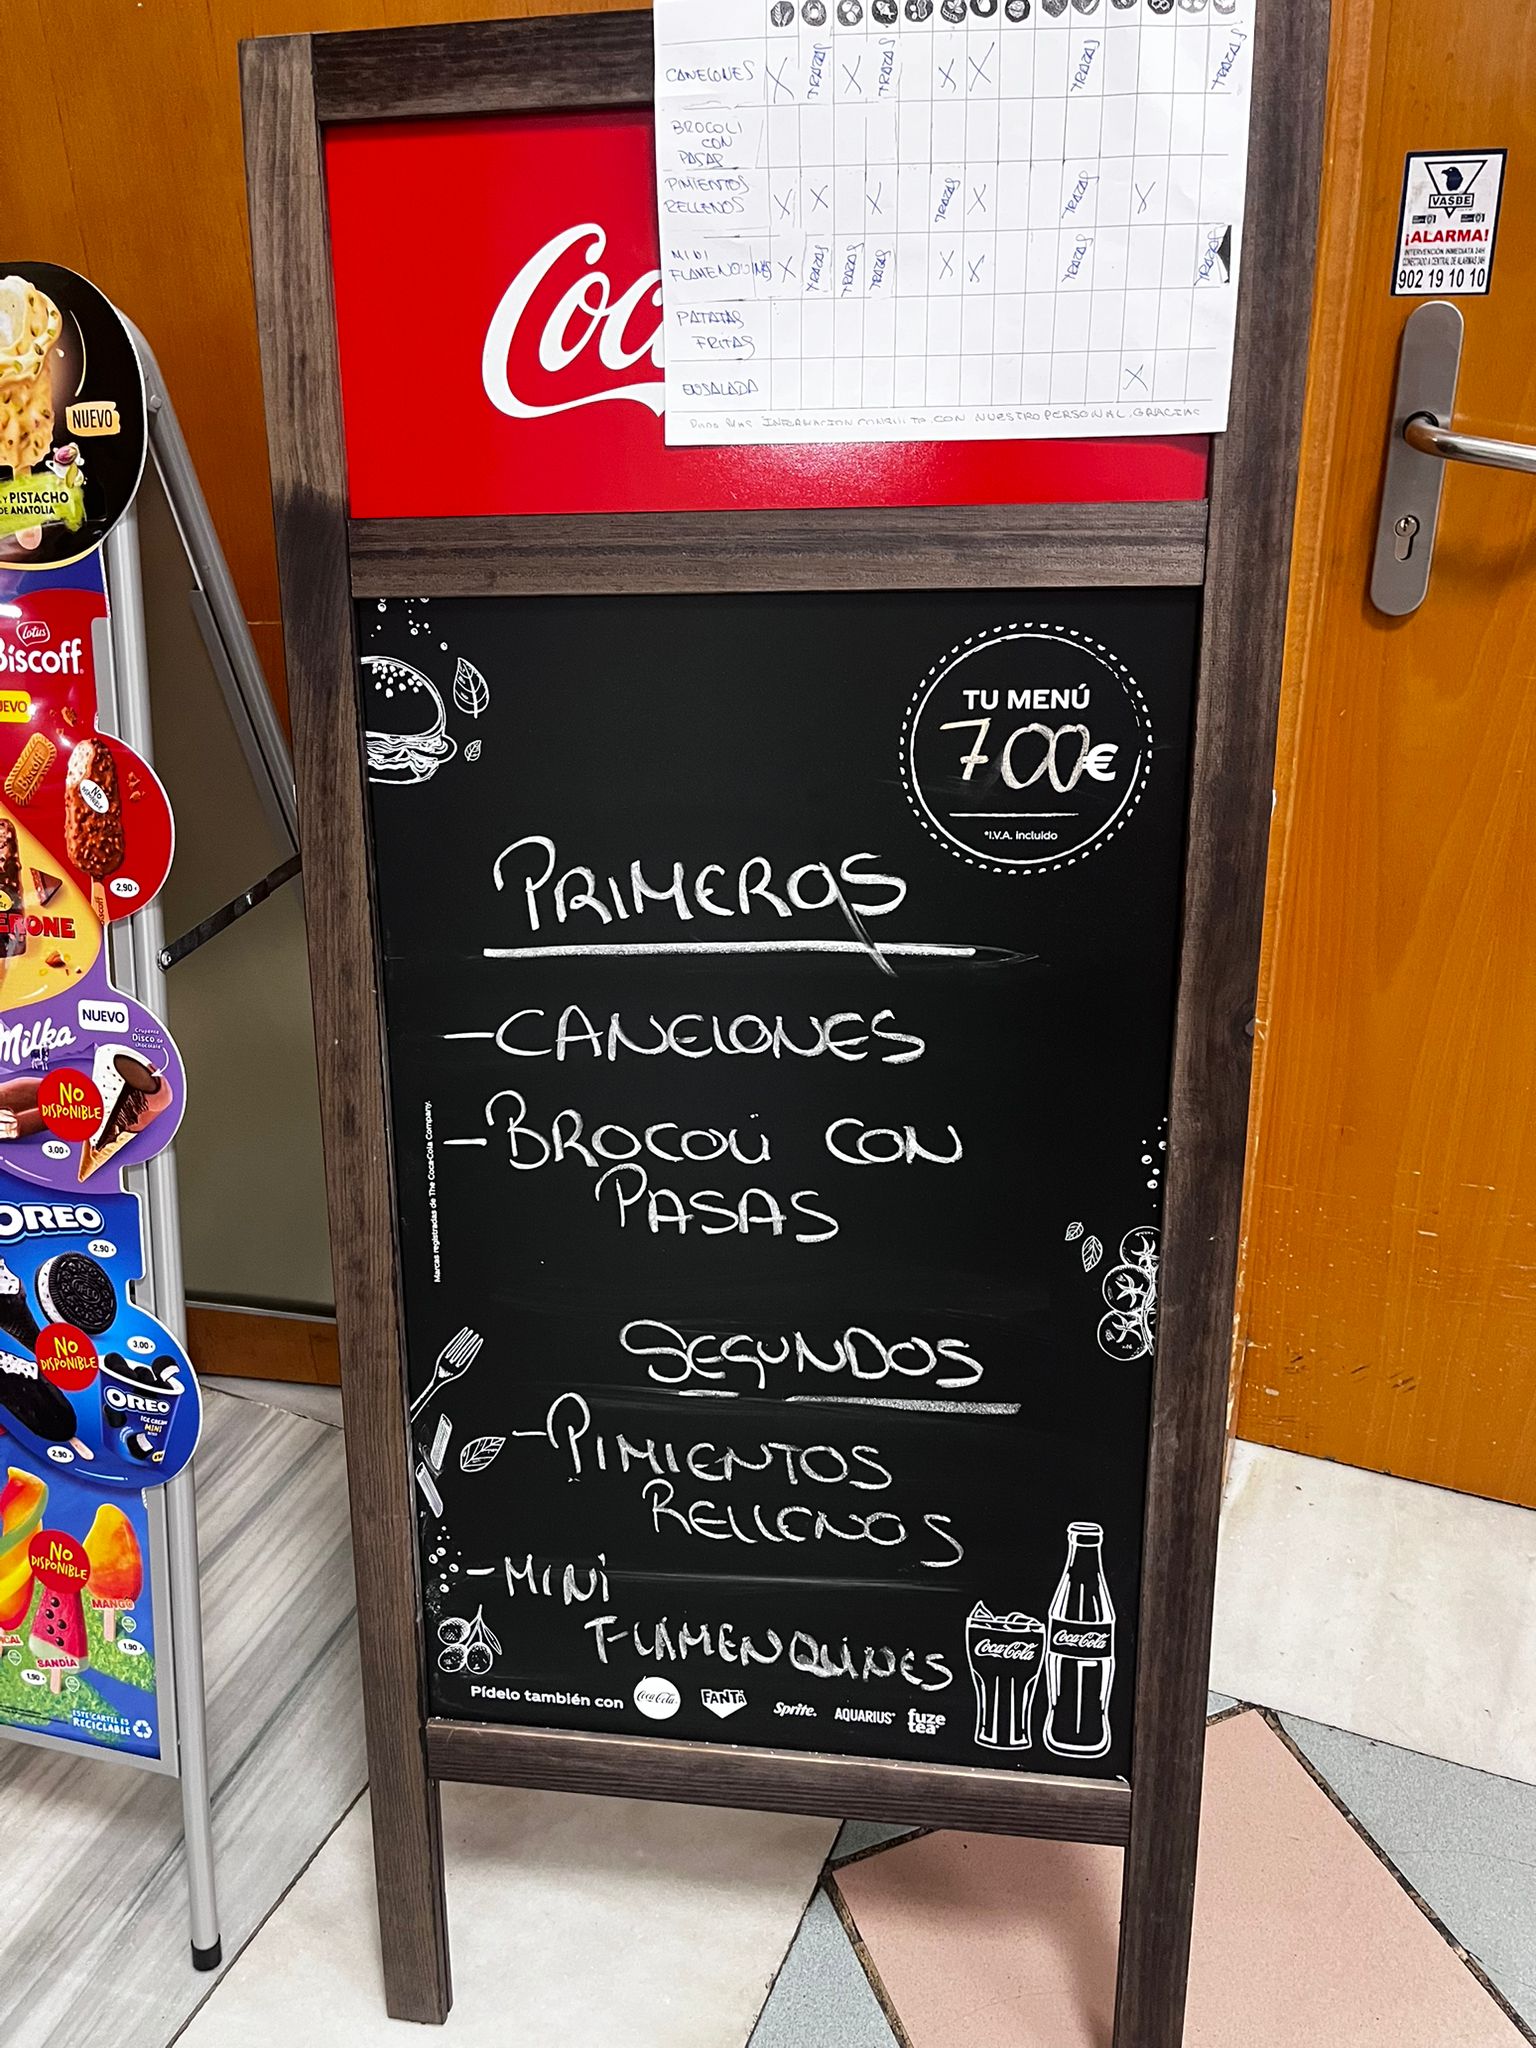 CANELONES X TRAZAS X TRAZAS X X TRAZAS TRAZAS
BROCOLI
CON
PASAS
PIMIENTOS
RELLENOS X X X TRAZAS X TRAZAS X
MINI
FLAMENQUINES X TRAZAS TRAZAS TRAZAS X X TRAZAS TRAZAS
PATATAS
FRITAS
ENSALADA X
PARA MAS INFORMACION CONSULTA CON NUESTRO PERSONAL. GRACIAS
Coca
VASBE
¡ALARMA!
INTERVENCIÓN INMEDIATA 24H
CONECTADO A CENTRAL DE ALARMAS 24H
902 19 10 10
TU MENÚ
7'00€
*I.V.A. incluido
PRIMEROS
-CANELONES
-BROCOLI CON
PASAS
SEGUNDOS
-PIMIENTOS
RELLENOS
-MINI
FLAMENQUINES
Marcas registradas de The Coca-Cola Company.
Pídelo también con Coca-Cola FANTA Sprite. AQUARIUS fuze
tea
Coca-Cola
Coca-Cola
NUEVO
Y PISTACHO
DE ANATOLIA
Lotus
Biscoff
NUEVO
Biscoff
NO
DISPONIBLE
2,90
ERONE
NUEVO
Milka
Crujiente
Disco de
chocolate
NO
DISPONIBLE
3,00
OREO
2,90
NO
DISPONIBLE
3,00
OREO
ICE CREAM
MINI
2,90
NO
DISPONIBLE
MANGO
1,90
SANDÍA
1,90
ESTE CARTEL ES
RECICLABLE